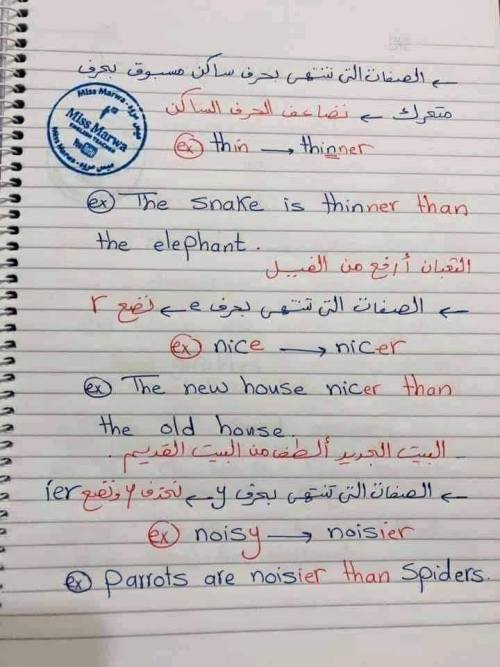 ← الصفات التى تنتهى بحرف ساكن مسبوق بحرف
متحرك ← نضاعف الحرف الساكن
Miss Marwa
Miss Marwa
ENGLISH TEACHER
You
ميس مروة
Miss Marwa
ex thin → thinner
ex The snake is thinner than
the elephant.
الثعبان أرفع من الفيل
← الصفات التى تنتهى بحرف e ← نضع r
ex nice → nicer
ex The new house nicer than
the old house.
البيت الجديد ألطف من البيت القديم.
← الصفات التى تنتهى بحرف y ← نحذف y ونضع ier
ex noisy → noisier
ex parrots are noisier than spiders.